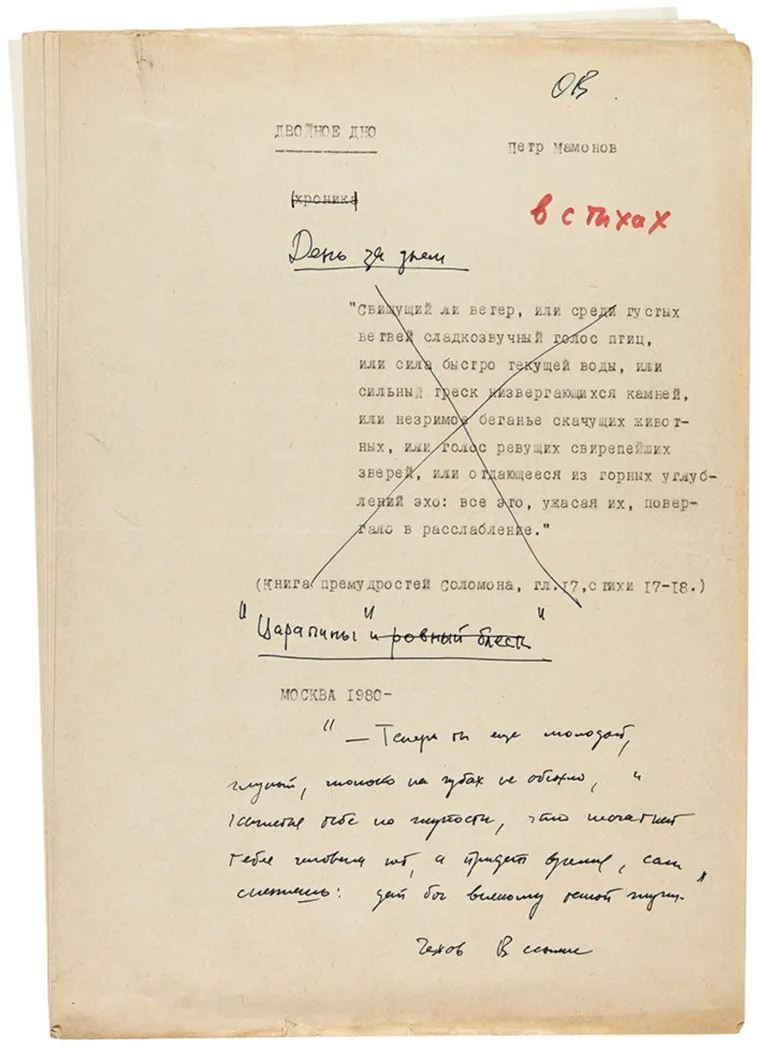 ОВ.
ДВОЙНОЕ ДНО
Петр Мамонов
(хроника)
в стихах
День за днем
"Свищущий ли ветер, или среди густых
ветвей сладкозвучный голос птиц,
или сила быстро текущей воды, или
сильный треск низвергающихся камней,
или незримое беганье скачущих живот-
ных, или голос ревущих свирепейших
зверей, или отдающееся из горных углуб-
лений эхо: все это, ужасая их, повер-
гало в расслабление."
(Книга премудростей Соломона, гл.17,стихи 17-18.)
"Царапины" и ровный блеск"
МОСКВА 1980-
"— Теперь ты еще молодой,
глупый, молоко на губах не обсохло, и
кажется тебе по глупости, что несчастней
тебя человека нет, а придет время, сам
скажешь: дай бог всякому такой жизни."
Чехов В ссылке